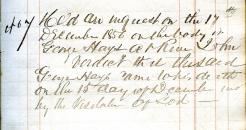 467 Held an inquest on the 17
December 1856 on the body of
George Hays at River St John
verdict that the said
George Hays came to his death
on the 15 day of December inst
by the Visitation of God —